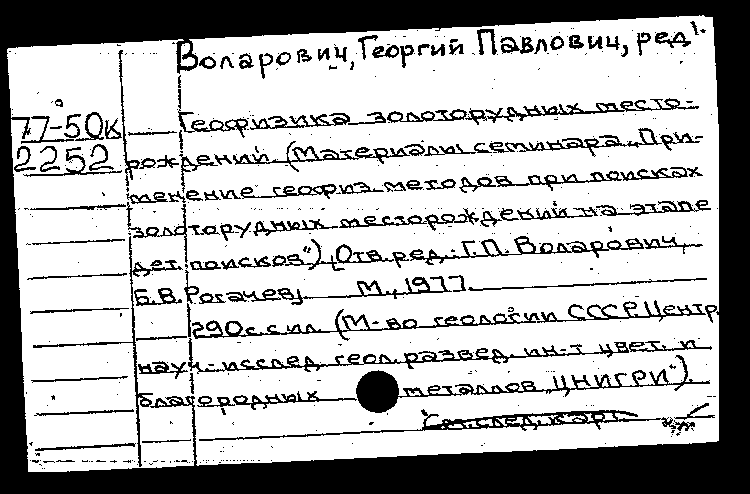 Воларович, Георгий Павлович, ред.
77-50к Геофизика золоторудных место-
2252 рождений. (Материалы семинара „При-
менение геофиз. методов при поисках
золоторудных месторождений на этапе
дет. поисков"). [Отв. ред.: Г.П. Воларович,
Б.В. Рогачев]. М., 1977.
290 с. с ил. (М-во геологии СССР. Центр.
науч.-исслед. геол.развед. ин-т цвет. и
благородных металлов „ЦНИГРИ").
См. след. карт.